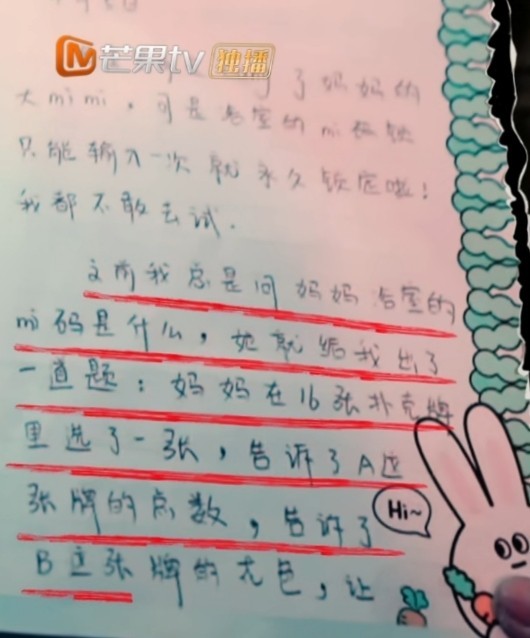 芒果tv 独播
了妈妈的
大mimi，可是浴室的mi码锁
只能输入一次就永久锁定啦！
我都不敢去试.
之前我总是问妈妈浴室的
mi码是什么，她就给我出了
一道题：妈妈在16张扑克牌
里选了一张，告诉了A这
张牌的点数，告诉了
B这张牌的花色，让
Hi~